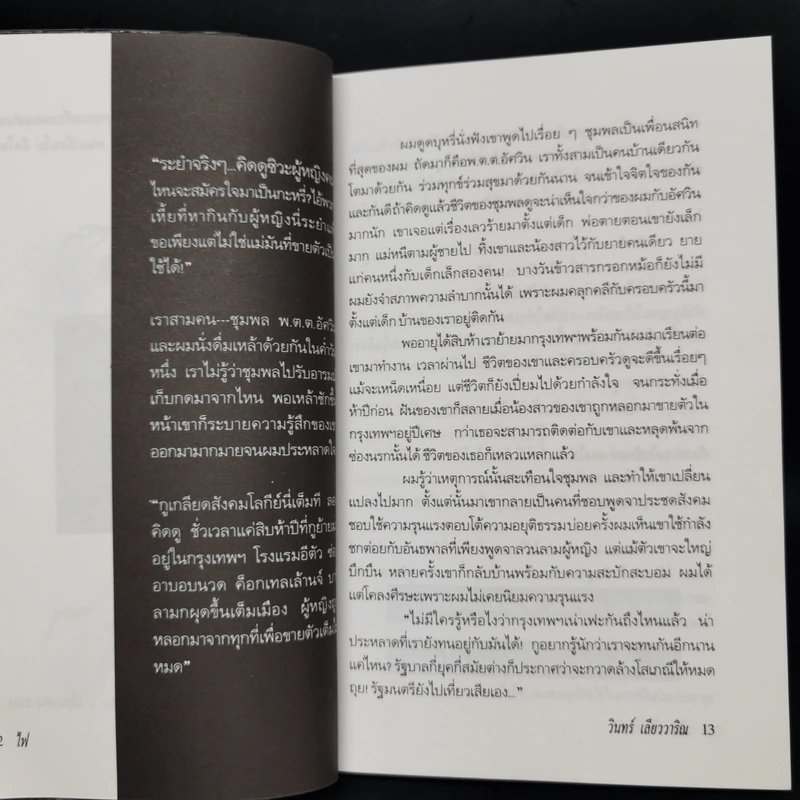 "ระยำจริงๆ...คิดดูซิวะผู้หญิง
ไหนจะสมัครใจมาเป็นกะหรี่?ไอ้พวก
เหี้ยที่หากินกับผู้หญิงนี่ระยำ
ขอเพียงแต่ไม่ใช่แม่มันที่ขายตัวเป็น
ใช้ได้!"
เราสามคน---ชุมพล พ.ต.ต.อัศวิน
และผมนั่งดื่มเหล้าด้วยกันในค่ำวัน
หนึ่ง เราไม่รู้ว่าชุมพลไปรับอารมณ์
เก็บกดมาจากไหน พอเหล้าชักขึ้น
หน้าเขาก็ระบายความรู้สึกของ
ออกมามากมายจนผมประหลาดใจ
"กูเกลียดสังคมโลกีย์นี่เต็มที ลอง
คิดดู ชั่วเวลาแค่สิบห้าปีที่กูย้าย
อยู่ในกรุงเทพฯ โรงแรมอีตัว ซ่อง
อาบอบนวด ค็อกเทลเล้านจ์ บาร์
ลามกผุดขึ้นเต็มเมือง ผู้หญิงถูก
หลอกมาจากทุกที่เพื่อขายตัวเต็มไป
หมด"
2 ไฟ
ผมดูดบุหรี่นั่งฟังเขาพูดไปเรื่อย ๆ ชุมพลเป็นเพื่อนสนิท
ที่สุดของผม ถัดมาก็คือพ.ต.ต.อัศวิน เราทั้งสามเป็นคนบ้านเดียวกัน
โตมาด้วยกัน ร่วมทุกข์ร่วมสุขมาด้วยกันนาน จนเข้าใจจิตใจของกัน
และกันดีถ้าคิดดูแล้วชีวิตของชุมพลดูจะน่าเห็นใจกว่าของผมกับอัศวิน
มากนัก เขาเจอแต่เรื่องเลวร้ายมาตั้งแต่เด็ก พ่อตายตอนเขายังเล็ก
มาก แม่หนีตามผู้ชายไป ทิ้งเขาและน้องสาวไว้กับยายคนเดียว ยาย
แก่คนหนึ่งกับเด็กเล็กสองคน! บางวันข้าวสารกรอกหม้อก็ยังไม่มี
ผมยังจำสภาพความลำบากนั้นได้ เพราะผมคลุกคลีกับครอบครัวนี้มา
ตั้งแต่เด็ก บ้านของเราอยู่ติดกัน
พออายุได้สิบห้าเราย้ายมากรุงเทพฯพร้อมกันผมมาเรียนต่อ
เขามาทำงาน เวลาผ่านไป ชีวิตของเขาและครอบครัวดูจะดีขึ้นเรื่อยๆ
แม้จะเหน็ดเหนื่อย แต่ชีวิตก็ยังเปี่ยมไปด้วยกำลังใจ จนกระทั่งเมื่อ
ห้าปีก่อน ฝันของเขาก็สลายเมื่อน้องสาวของเขาถูกหลอกมาขายตัวใน
กรุงเทพฯอยู่ปีเศษ กว่าเธอจะสามารถติดต่อกับเขาและหลุดพ้นจาก
ซ่องนรกนั้นได้ ชีวิตของเธอก็เหลวแหลกแล้ว
ผมรู้ว่าเหตุการณ์นั้นสะเทือนใจชุมพล และทำให้เขาเปลี่ยน
แปลงไปมาก ตั้งแต่นั้นมาเขากลายเป็นคนที่ชอบพูดจาประชดสังคม
ชอบใช้ความรุนแรงตอบโต้ความอยุติธรรมบ่อยครั้งผมเห็นเขาใช้กำลัง
ชกต่อยกับอันธพาลที่เพียงพูดจาลวนลามผู้หญิง แต่แม้ตัวเขาจะใหญ่
บึกบึน หลายครั้งเขาก็กลับบ้านพร้อมกับความสะบักสะบอม ผมได้
แต่โคลงศีรษะเพราะผมไม่เคยนิยมความรุนแรง
"ไม่มีใครรู้หรือไงว่ากรุงเทพฯเน่าเฟะกันถึงไหนแล้ว น่า
ประหลาดที่เรายังทนอยู่กับมันได้! กูอยากรู้นักว่าเราจะทนกันอีกนาน
แค่ไหน? รัฐบาลกี่ยุคกี่สมัยต่างก็ประกาศว่าจะกวาดล้างโสเภณีให้หมด
ถุย! รัฐมนตรียังไปเที่ยวเสียเอง..."
วินทร์ เลียววาริณ 13